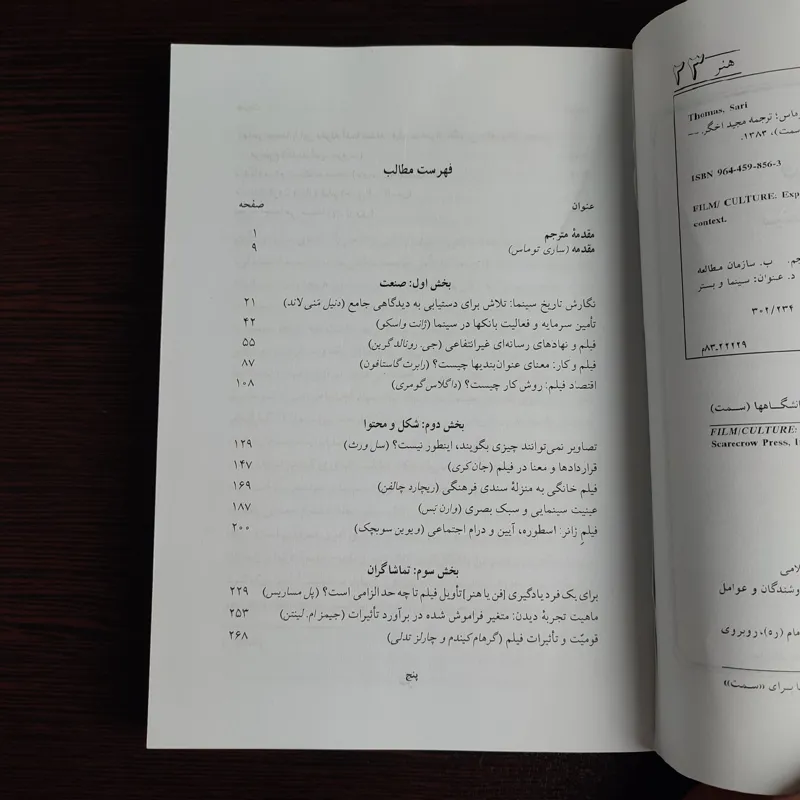 فهرست مطالب
عنوان صفحه
مقدمهٔ مترجم ۱
مقدمه (ساری توماس) ۹
بخش اول: صنعت
نگارش تاریخ سینما: تلاش برای دستیابی به دیدگاهی جامع (دنیل مَنی لاند) ۲۱
تأمین سرمایه و فعالیت بانکها در سینما (ژانت واسکو) ۴۲
فیلم و نهادهای رسانه‌ای غیرانتفاعی (جی. رونالدگرین) ۵۵
فیلم و کار: معنای عنوان‌بندیها چیست؟ (رابرت گاستافون) ۸۷
اقتصاد فیلم: روش کار چیست؟ (داگلاس گومری) ۱۰۸
بخش دوم: شکل و محتوا
تصاویر نمی‌توانند چیزی بگویند، اینطور نیست؟ (سل ورث) ۱۲۹
قراردادها و معنا در فیلم (جان کری) ۱۴۷
فیلم خانگی به منزلهٔ سندی فرهنگی (ریچارد چالفن) ۱۶۹
عینیت سینمایی و سبک بصری (وارن بَس) ۱۸۷
فیلمِ ژانر: اسطوره، آیین و درام اجتماعی (ویوین سوبچک) ۲۰۰
بخش سوم: تماشاگران
برای یک فرد یادگیری [فن یا هنر] تأویل فیلم تا چه حد الزامی است؟ (پل مساریس) ۲۲۹
ماهیت تجربهٔ دیدن: متغیر فراموش شده در برآورد تأثیرات (جیمز ام. لینتن) ۲۵۳
قومیّت و تأثیرات فیلم (گرهام کیندم و چارلز تدلی) ۲۶۸
پنج
هنر ۲۳
Thomas, Sari
ماس؛ ترجمه مجید اخگر. --
سمت)، ۱۳۸۳.
ISBN 964-459-856-3
FILM/ CULTURE: Exp
context.
جم. ب. سازمان مطالعه
د. عنوان: سینما و بستر
۳۰۲/۲۳۴
۸۳-۲۲۲۲۹م
انشگاهها (سمت)
FILM/CULTURE:
Scarecrow Press, I
لامی
وشندگان و عوامل
مام (ره)، روبروی
ا برای «سمت»